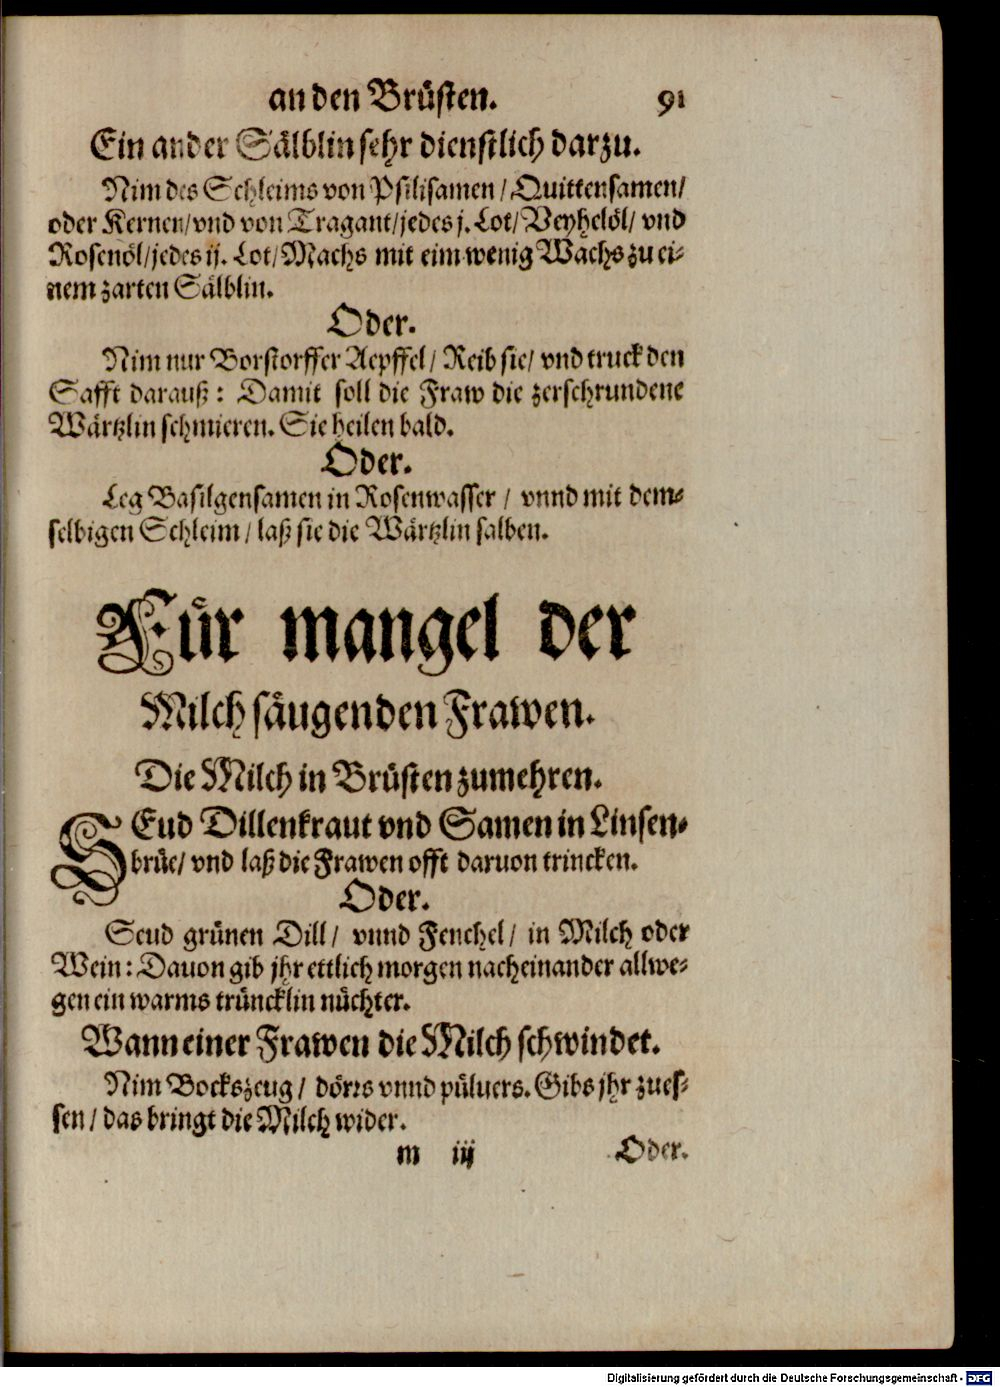 an den Brüsten. 91
Ein ander Sälblin sehr dienstlich darzu.
Nim des Schleims von Psilisamen / Quittensamen /
oder Kernen / vnd von Tragant / jedes j. Lot / Veyhelöl / vnd
Rosenöl / jedes ij. Lot / Machs mit eim wenig Wachs zu ei-
nem zarten Sälblin.
Oder.
Nim nur Borstorffer Aepffel / Reib sie / vnd truck den
Safft darauß : Damit soll die Fraw die zerschrundene
Wärtzlin schmieren. Sie heilen bald.
Oder.
Leg Basilgensamen in Rosenwasser / vnnd mit dem-
selbigen Schleim / laß sie die Wärtzlin salben.
Für mangel der
Milch säugenden Frawen.
Die Milch in Brüsten zumehren.
SEud Dillenkraut vnd Samen in Linsen-
brüe / vnd laß die Frawen offt daruon trincken.
Oder.
Seud grünen Dill / vnnd Fenchel / in Milch oder
Wein : Dauon gib jhr ettlich morgen nacheinander allwe-
gen ein warms trüncklin nüchter.
Wann einer Frawen die Milch schwindet.
Nim Bockszeug / dörrs vnnd püluers. Gibs jhr zues-
sen / das bringt die Milch wider.
m iij Oder.
Digitalisierung gefördert durch die Deutsche Forschungsgemeinschaft - DFG